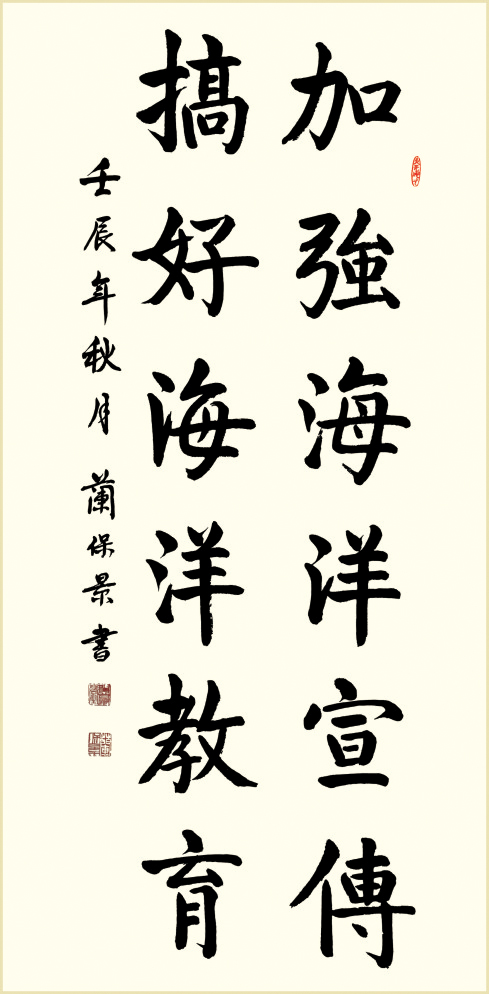 加強海洋宣傳
搞好海洋教育
壬辰年秋月 蘭保景書